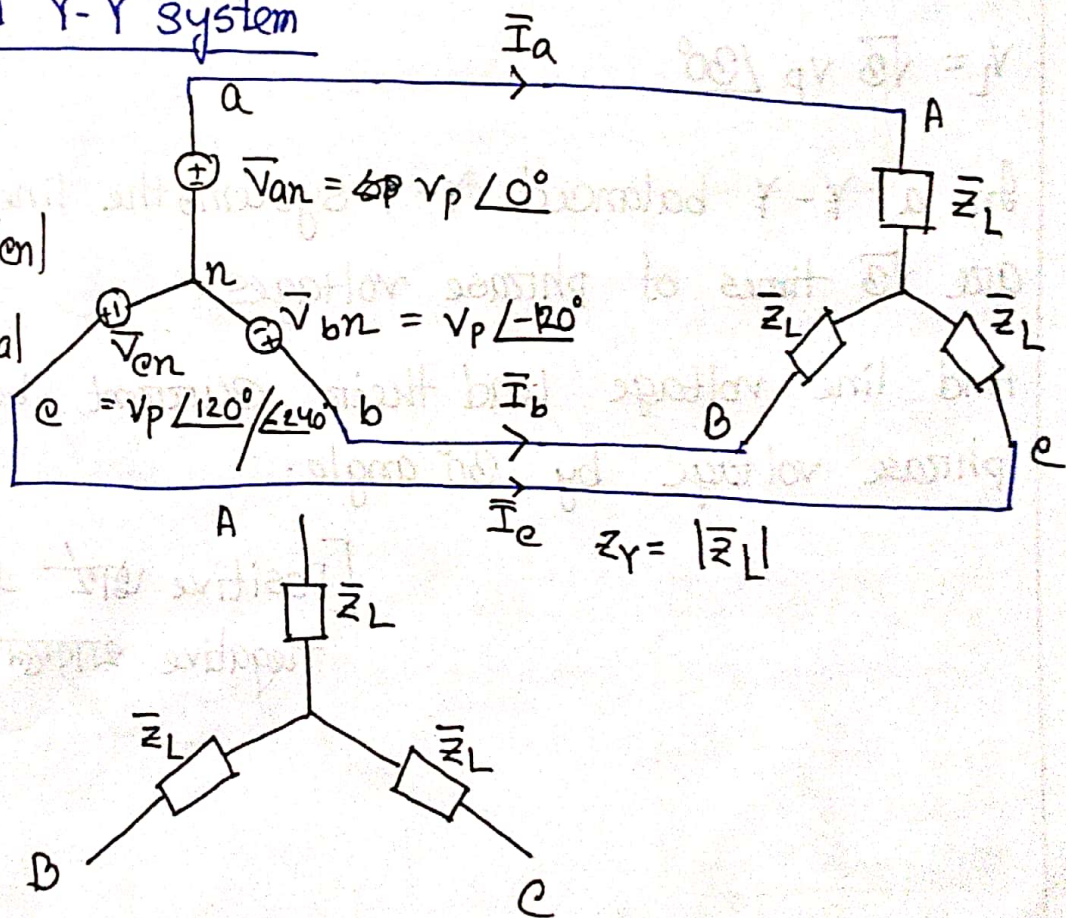 Y-Y system
I̅a
a
A
V̅an = Vp ∠0°
Z̅L
en|
n
V̅bn = Vp ∠-120°
Z̅L
Z̅L
a|
V̅cn
= Vp ∠120°/∠240°
c
b
I̅b
B
c
I̅c
ZY = |Z̅L|
A
Z̅L
Z̅L
Z̅L
B
C